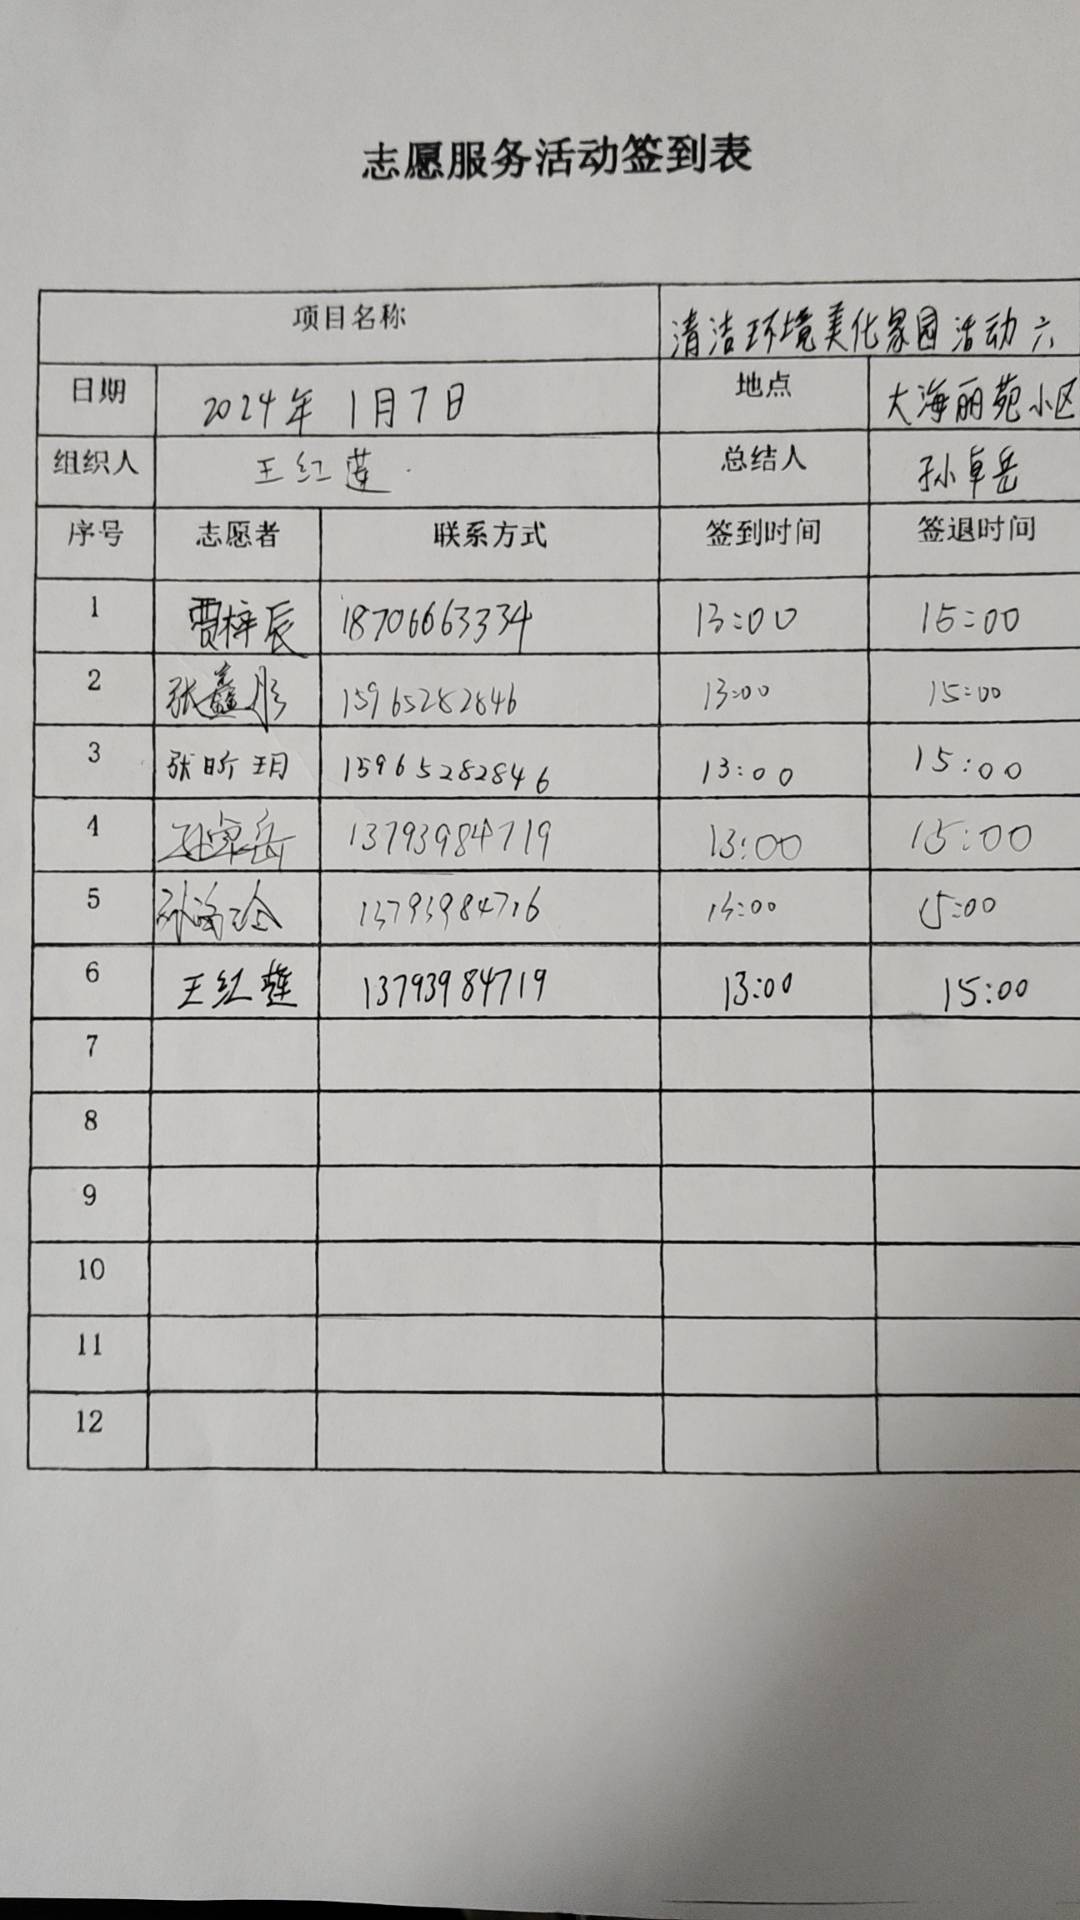 志愿服务活动签到表
项目名称 清洁环境美化家园活动六
日期 2024年 1月7日 地点 大海丽苑小区
组织人 王红莲 总结人 孙卓岳
序号 志愿者 联系方式 签到时间 签退时间
1 贾梓辰 18706663334 13:00 15:00
2 张鑫彤 15965282846 13:00 15:00
3 张昕玥 15965282846 13:00 15:00
4 孙卓岳 13793984719 13:00 15:00
5 13793984716 13:00 15:00
6 王红莲 13793984719 13:00 15:00
7
8
9
10
11
12